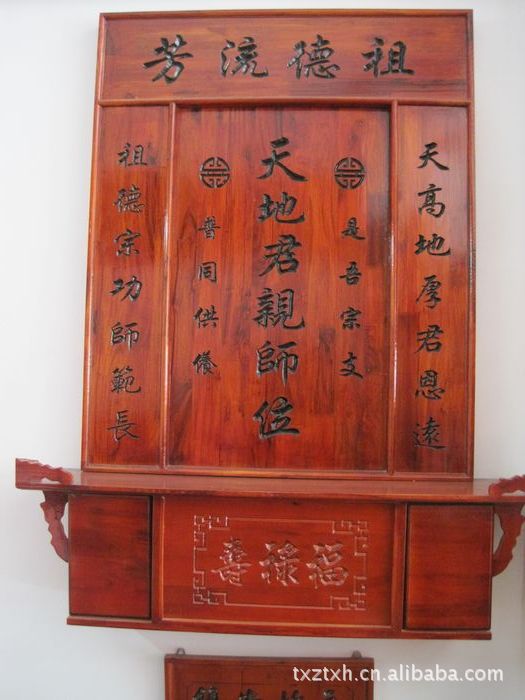 祖德流芳
天高地厚君恩遠
是吾宗支
天地君親師位
普同供儀
祖德宗功師範長
福禄壽
txztxh.cn.alibaba.com